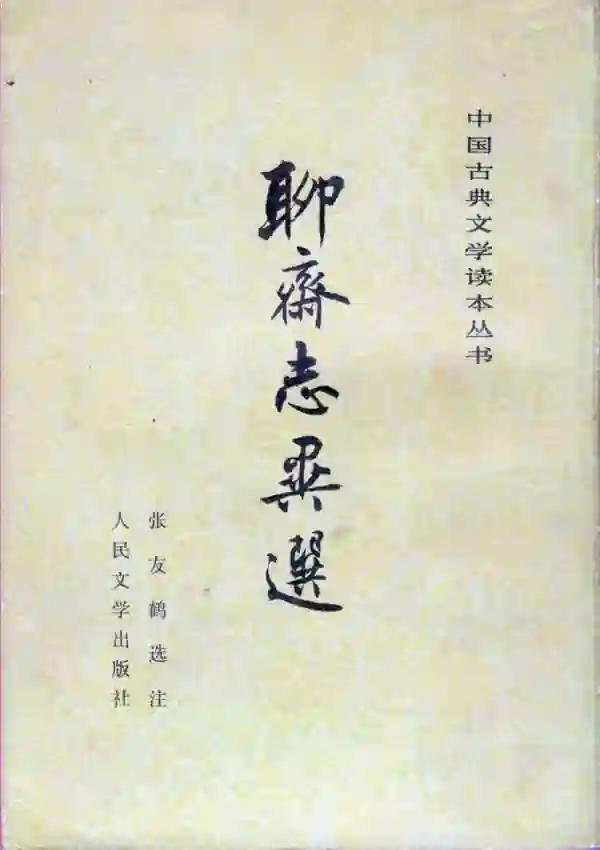 中国古典文学读本丛书
聊齋志異選
张友鹤选注
人民文学出版社